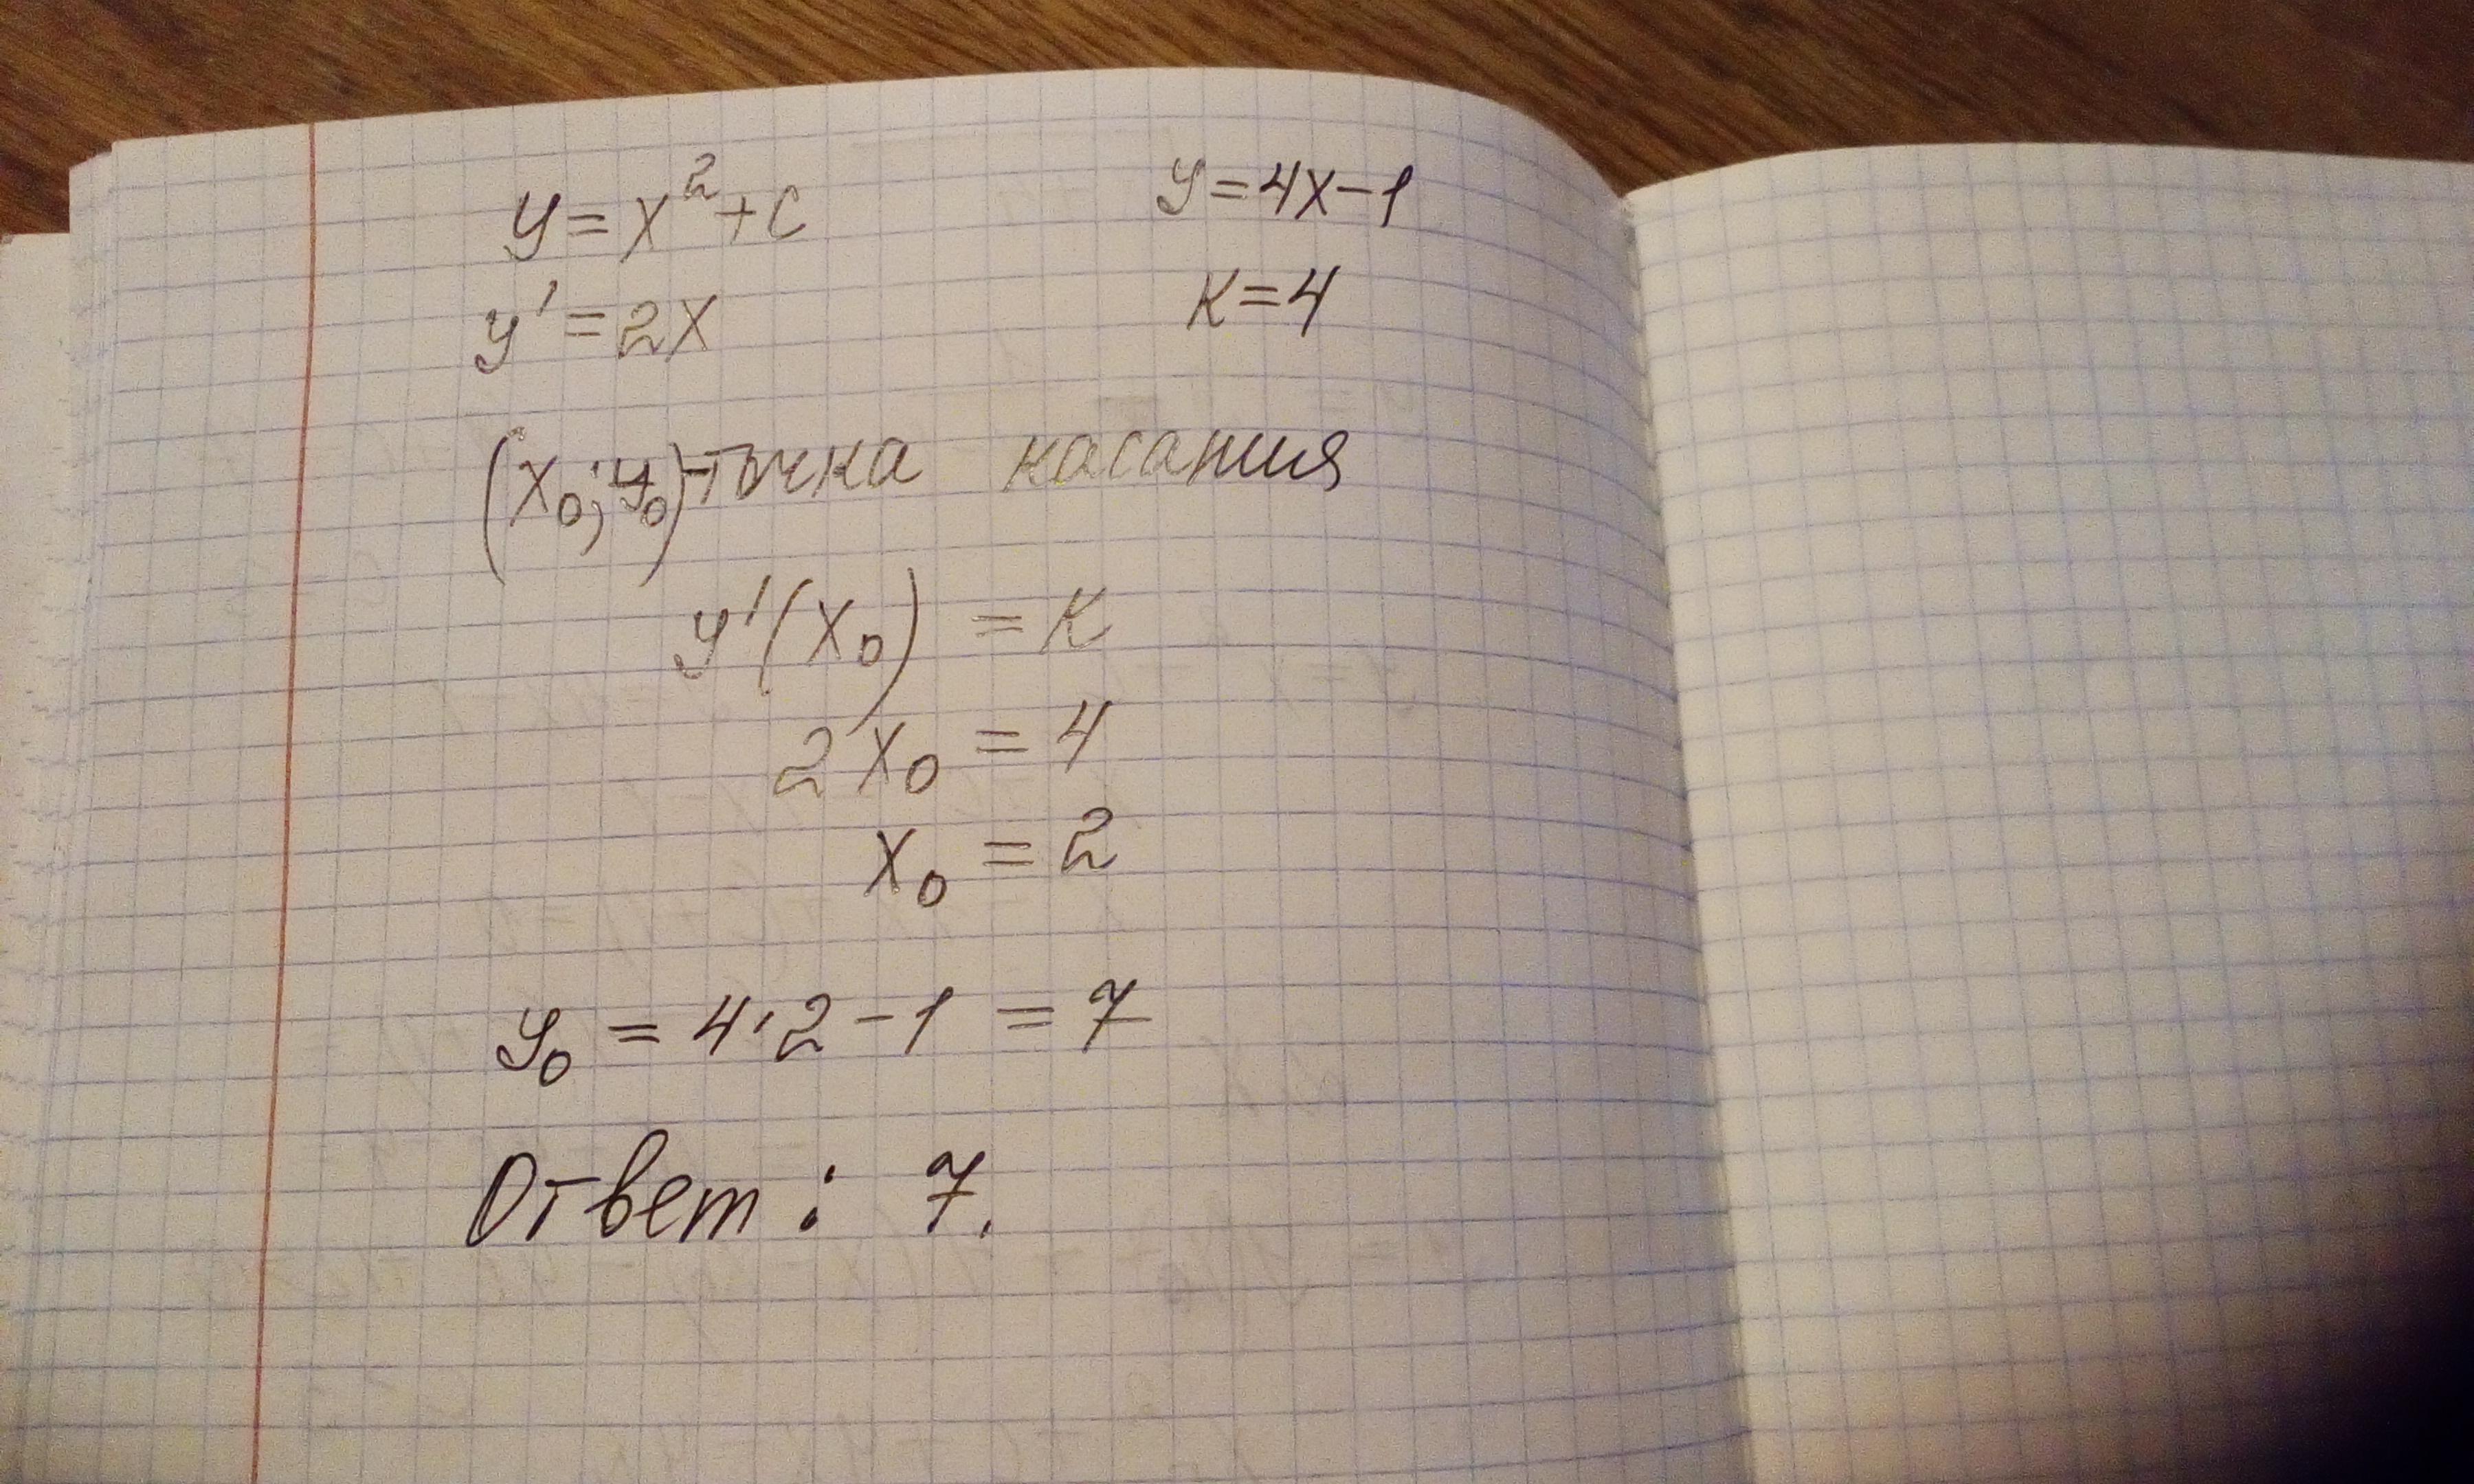 y = x² + c
y = 4x - 1
y' = 2x
k = 4
(x₀; y₀) - точка касания
y'(x₀) = k
2x₀ = 4
x₀ = 2
y₀ = 4·2 - 1 = 7
Ответ: 7.